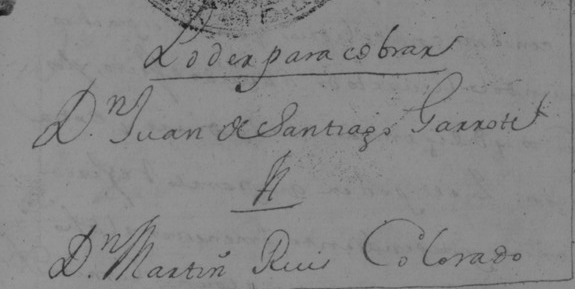 Poder para cobrar
D.n Juan de Santiago Garrote
A
D.n Martin Ruis Colorado